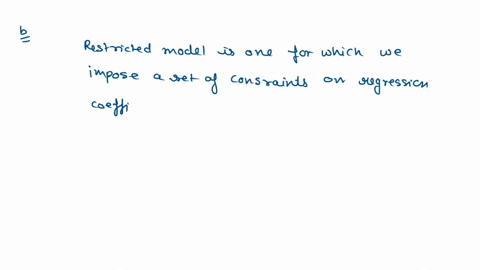 b
Restricted model is one for which we
impose a set of consraints on regression
coeffi